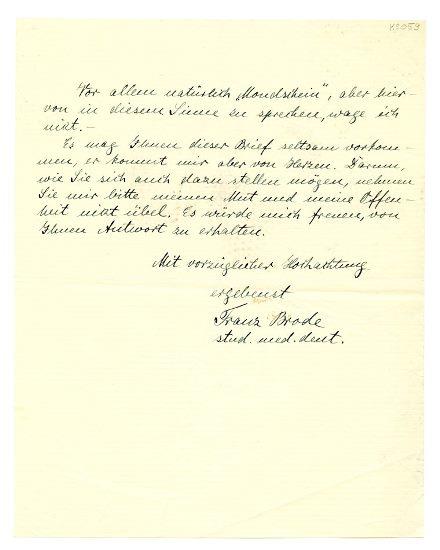 Vor allem natürlich „Mondschein“, aber hier-
von in diesem Sinne zu sprechen, wage ich
nicht. —
Es mag Ihnen dieser Brief seltsam vorkom-
men, er kommt mir aber von Herzen. Darum,
wie Sie sich auch dazu stellen mögen, nehmen
Sie mir bitte meinen Mut und meine Offen-
heit nicht übel. Es würde mich freuen, von
Ihnen Antwort zu erhalten.
Mit vorzüglicher Hochachtung
ergebenst
Franz Brode
stud. med. dent.